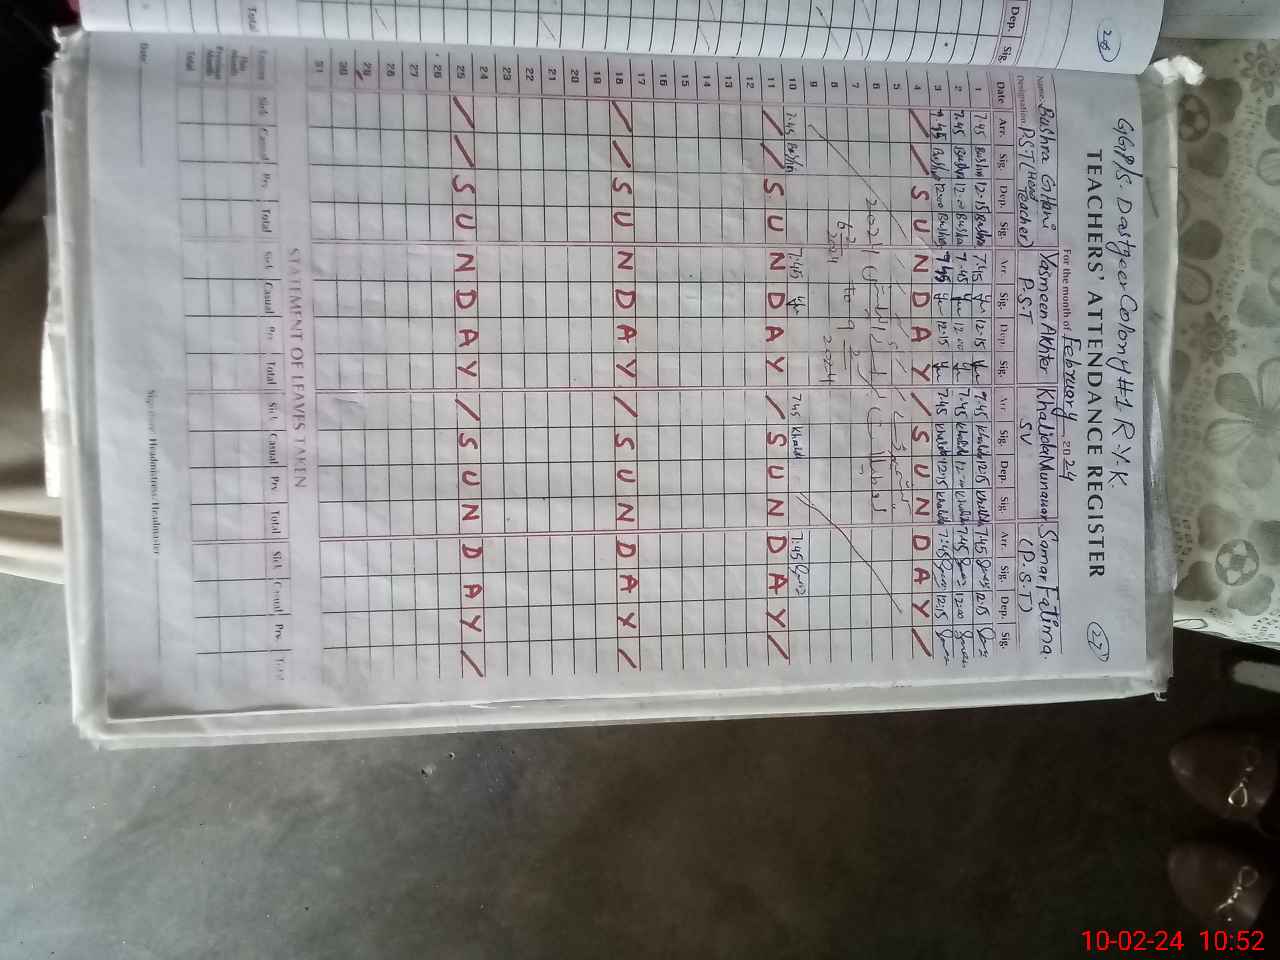 28
Dep. Sig
Total
G.G.P/S. Dastgeer Colony #1 R.Y.K.
27
TEACHERS' ATTENDANCE REGISTER
For the month of February 2024
Name Bushra Gilani Yasmeen Akhter Khalida Munawar Samar Fatima.
Designation P.S.T (Head Teacher) P.S.T SV (P.S.T)
Date Arr. Sig. Dep. Sig. Arr. Sig. Dep. Sig. Arr. Sig. Dep. Sig. Arr. Sig. Dep. Sig.
1 7.45 Bushra 12.15 Bushra 7.45 12.15 7.45 Khalida 12.15 Khalida 7.45 12.15
2 7.45 Bushra 12.0 Bushra 7.45 12.00 7.45 Khalida 12.00 Khalida 7.45 12.00
3 7.45 Bushra 12.00 Bushra 7.45 12.15 7.45 Khalida 12.15 Khalida 7.45 12.15
4 / / / S U N D A Y / S U N D A Y /
5
6 2024
7
8 6 2 2024 to 9 2 2024
9
10 7.45 Bushra 7.45 7.45 Khalida 7.45
11 / / S U N D A Y / S U N D A Y /
12
13
14
15
16
17
18 / / S U N D A Y / S U N D A Y /
19
20
21
22
23
24
25 / / / S U N D A Y / S U N D A Y /
26
27
28
29
30
31
STATEMENT OF LEAVES TAKEN
Leaves Sick Casual Prv. Total Sick Casual Prv. Total Sick Casual Prv. Total Sick Casual Prv. Total
This Month
Previous Month
Total
Date Signature Headmistress/Headmaster
10-02-24 10:52